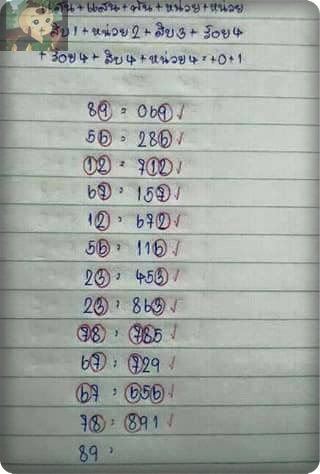 แสน+แสน+พัน+หน่วย+หน่วย
สิบ1+หน่วย2+สิบ3+ร้อย4
+ร้อย4+สิบ4+หน่วย4=+0+1
89 = 069 ✓
56 = 286 ✓
12 = 712 ✓
67 = 157 ✓
12 = 672 ✓
56 = 116 ✓
23 = 453 ✓
23 = 863 ✓
78 = 785 ✓
67 = 729 ✓
67 = 656 ✓
78 = 891 ✓
89 =